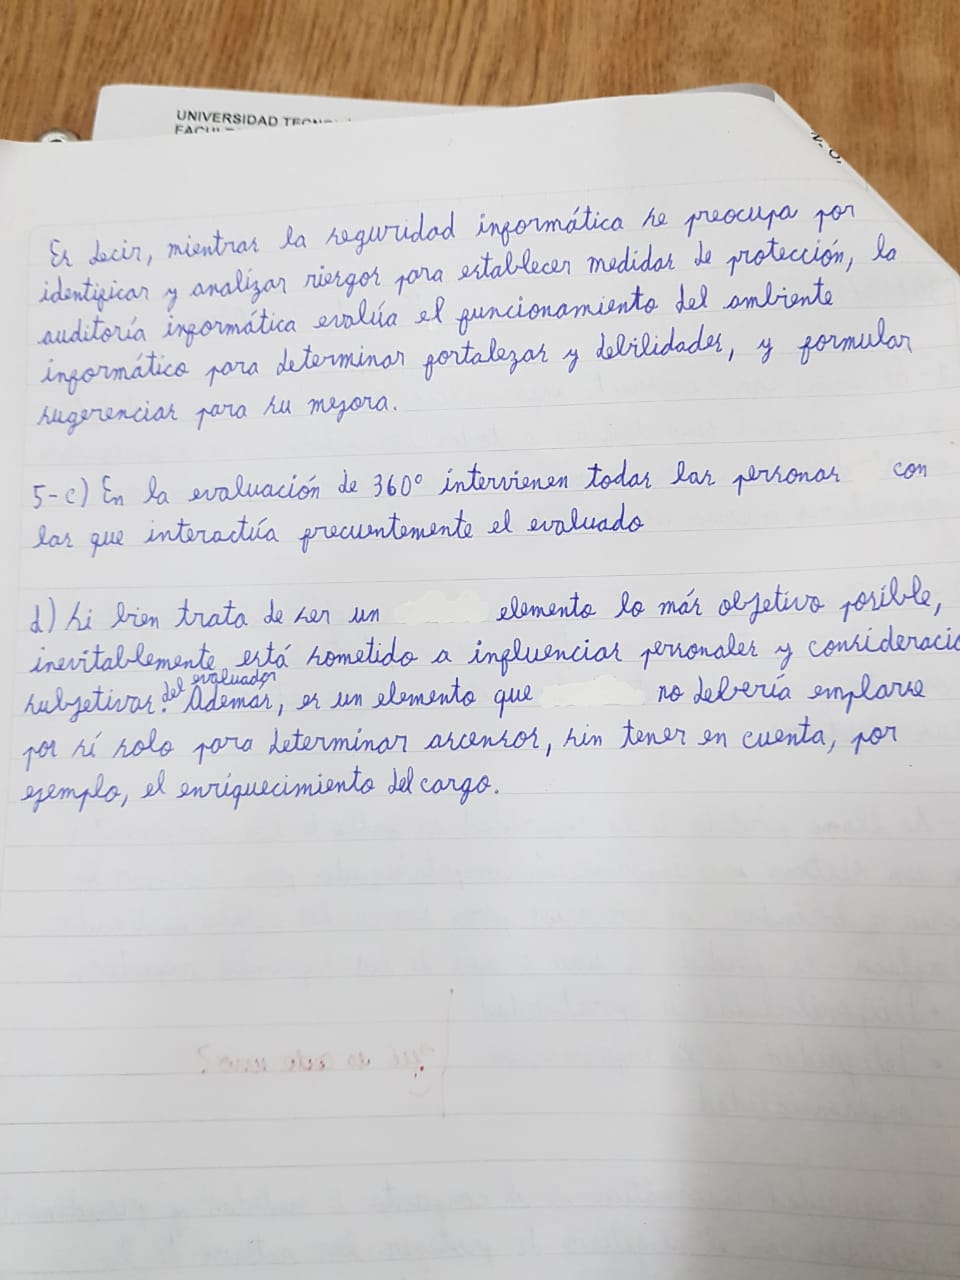 UNIVERSIDAD
Es decir, mientras la seguridad informática se preocupa por
identificar y analizar riesgos para establecer medidas de protección, la
auditoría informática evalúa el funcionamiento del ambiente
informático para determinar fortalezas y debilidades, y formular
sugerencias para su mejora.
5-c) En la evaluación de 360° intervienen todas las personas con
las que interactúa frecuentemente el evaluado
d) Si bien trata de ser un elemento lo más objetivo posible,
inevitablemente está sometido a influencias personales y consideracio
subjetivas del evaluador. Además, es un elemento que no debería emplarse
por sí solo para determinar ascensos, sin tener en cuenta, por
ejemplo, el enriquecimiento del cargo.